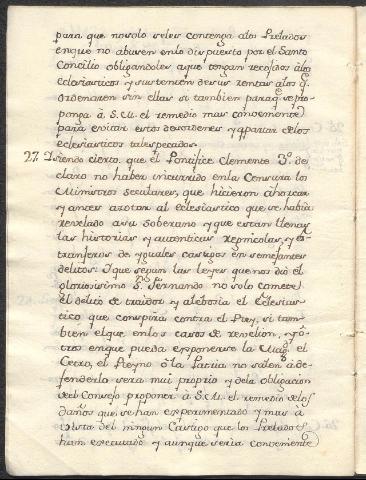 para que no solo se les contenga a los Prelados
en que no abusen en lo dispuesto por el Santo
Concilio obligandoles a que tengan recojidos a los
eclesiasticos y sustenten de sus rentas a los q.
ordenaren sin ellas si tambien para q. se pro-
ponga à S.M. el remedio mas conveniente
para evitar estos desordenes y apartar de los
eclesiasticos tales pecados.
27. Siendo cierto, que el Pontifice Clemente 3.º de
claro no haber incurrido en la Censura los
Ministros seculares, que hicieron ahorcar
y antes azotar al eclesiastico que se habia
revelado a su soberano y que estan llenas
las historias y autenticas regnicolas, y ex
trangeras de yguales castigos en semejantes
delitos: Y que segun las leyes que nos dió el
gloriosissimo S.n Fernando no solo comete
el delito de traidor y alebosia el Eclesias-
tico que conspira contra el Rey, si tam-
bien el que en los casos de revelion, y o-
tros en que pueda exponerse la Mag.d el
Cetro, el Reyno ò la Patria no salen à de-
fenderlo sera mui proprio y de la obligacion
del Consejo proponer à S.M. el remedio de los
daños que se han experimentado y mas à
vista del ningun Castigo que los Prelados
han executado y aunque seria conveniente